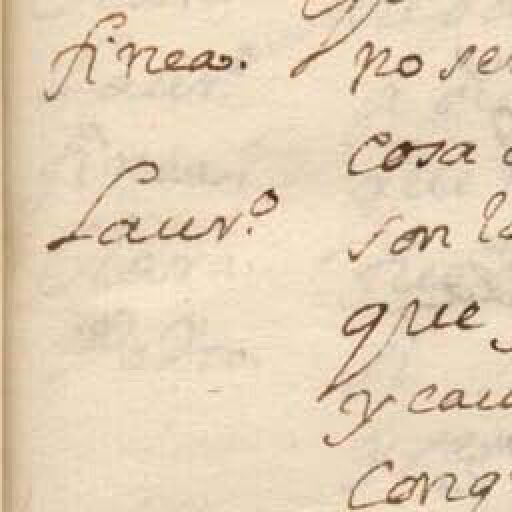 finea. no se
cosa
Laur.º son l
que
y cau
conq